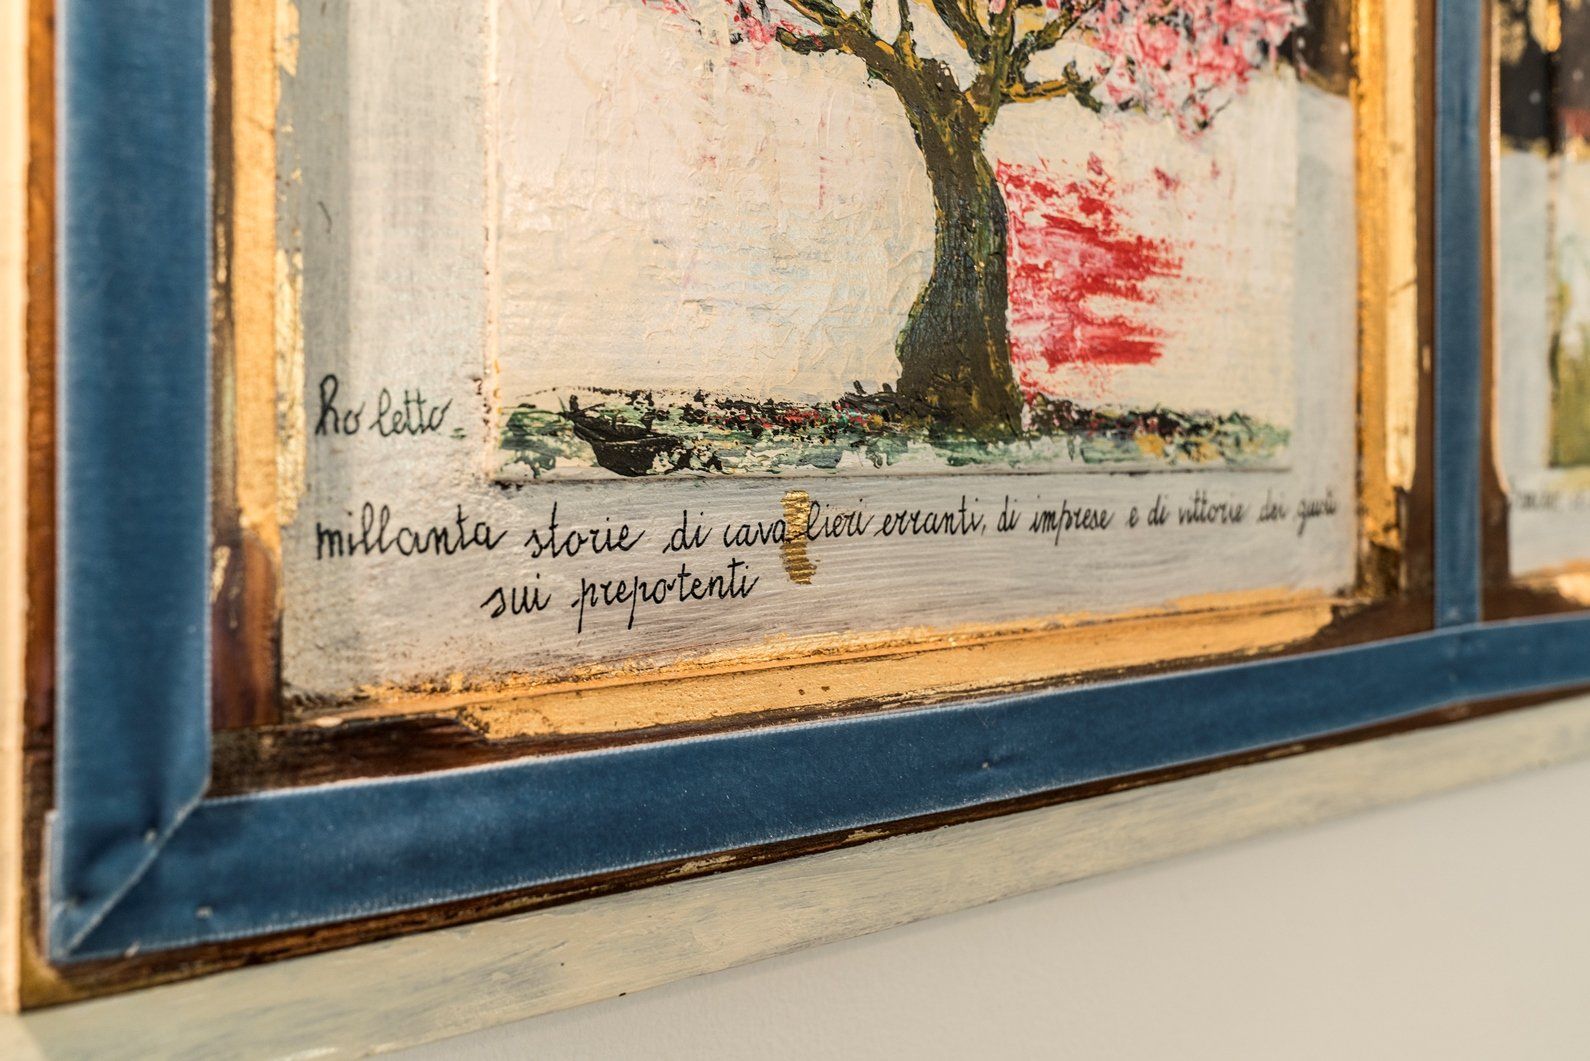 ho letto
millanta storie di cavalieri erranti, di imprese e di vittorie dei giusti
sui prepotenti